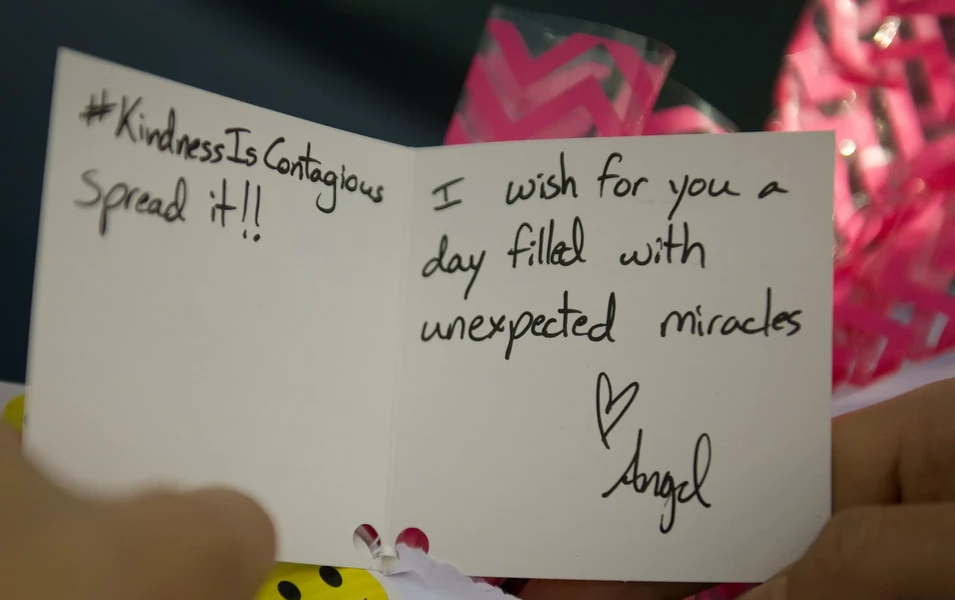 #KindnessIsContagious
Spread it!!
I wish for you a
day filled with
unexpected miracles
Angel